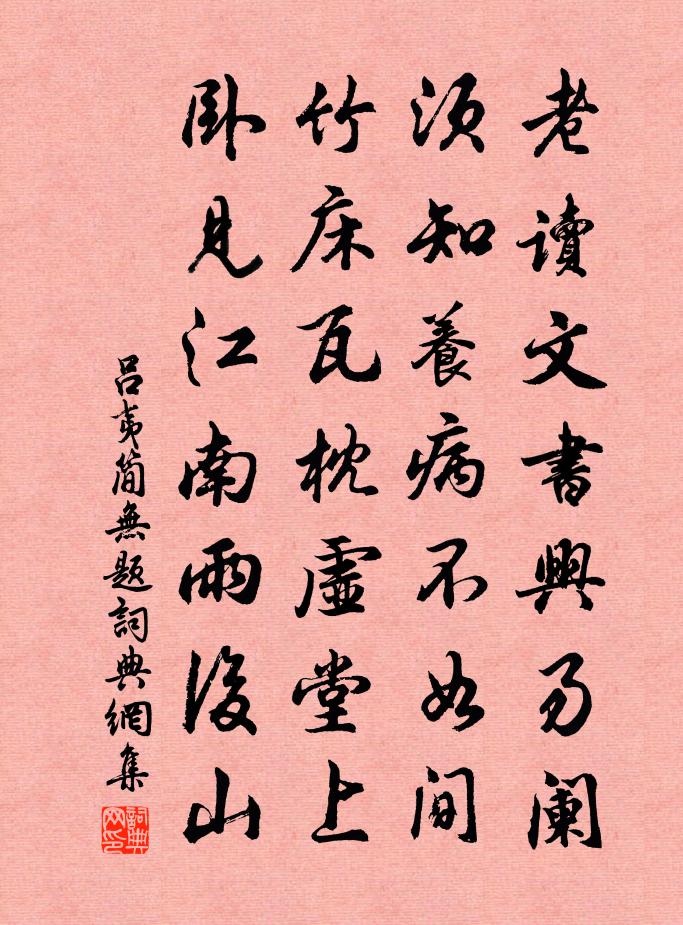 老讀文書興易闌
須知養病不如閒
竹床瓦枕虛堂上
卧見江南雨後山
呂夷簡無題詞典網集
詞典网印